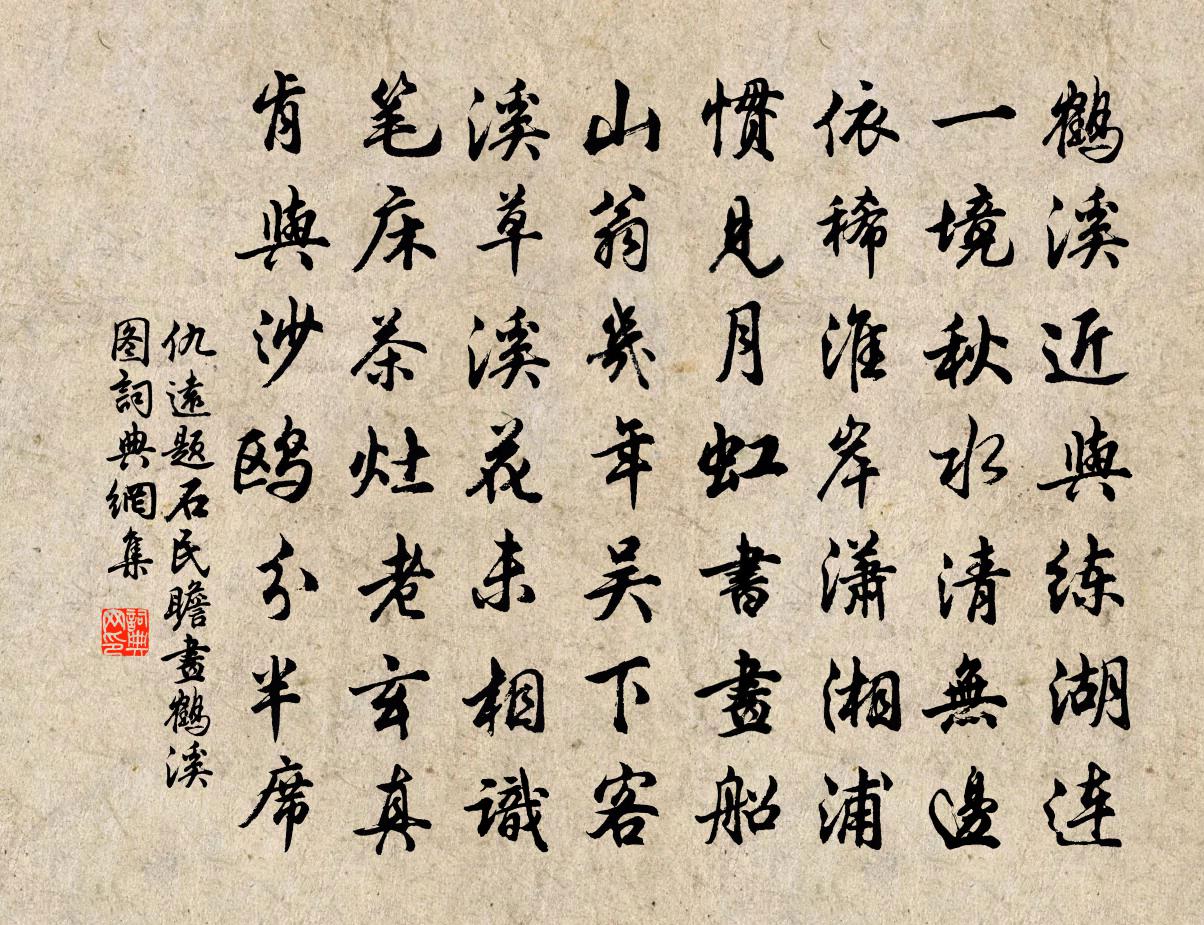 鹤溪近與练湖連
一境秋水清無邊
依稀淮岸瀟湘浦
慣见月虹書畫船
山翁幾年吴下客
溪草溪花未相識
笔床茶灶老玄真
肯與沙鸥分半席
仇遠题石民瞻畫鹤溪
图詞典網集
詞典网印